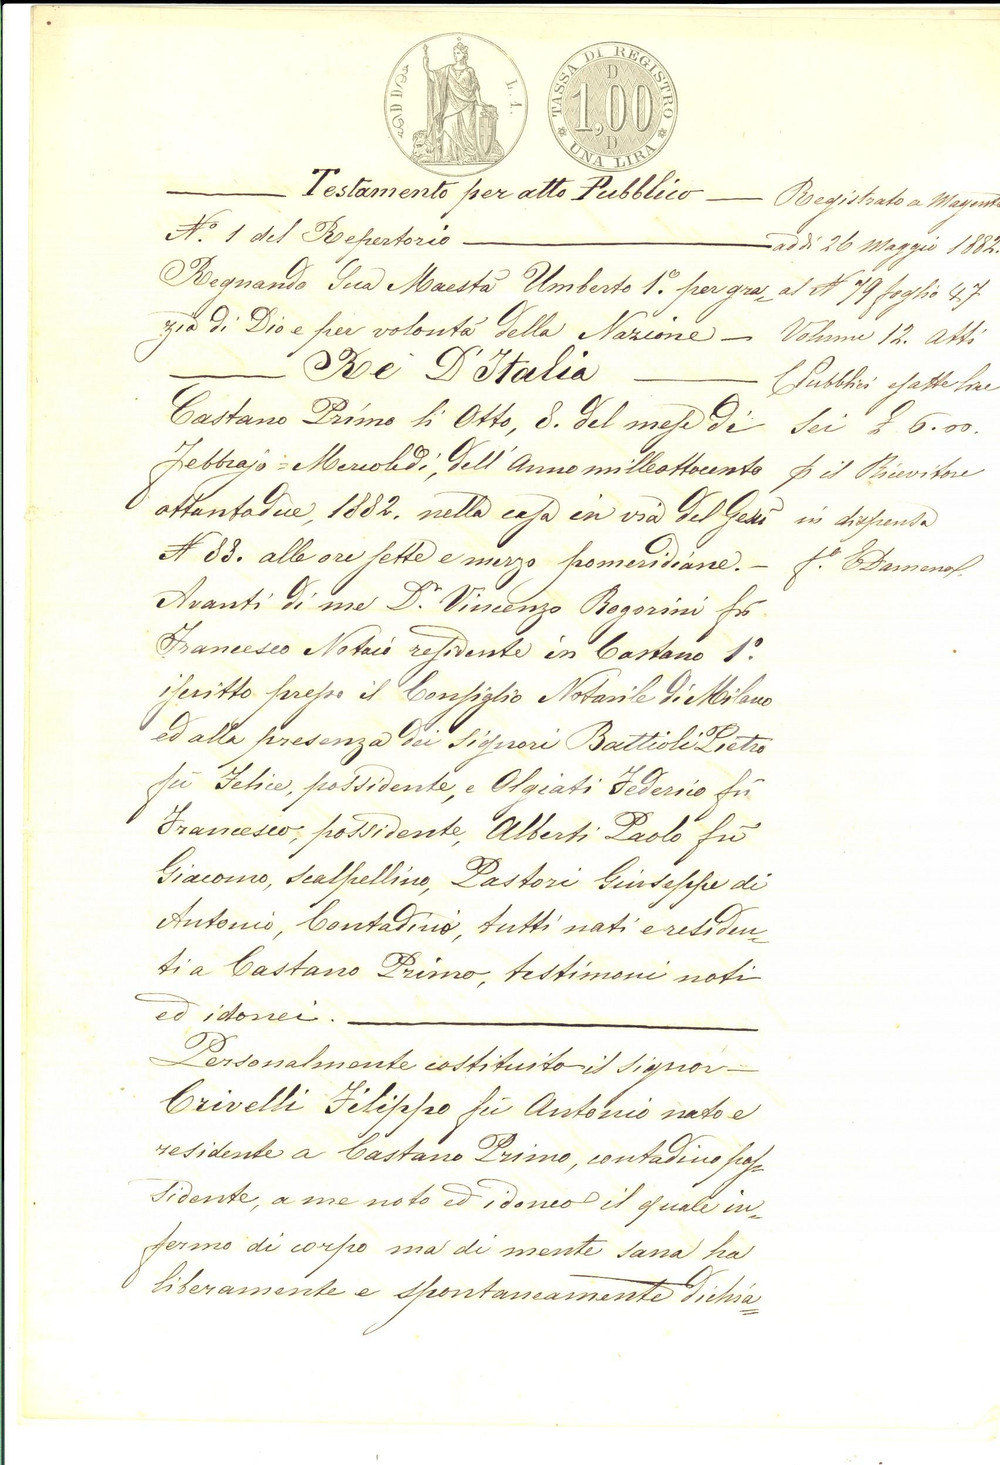 L. 1.
TASSA DI REGISTRO
D
1,00
D
UNA LIRA
Testamento per atto Pubblico
N.° 1 del Repertorio
Regnando Sua Maestà Umberto 1.° per gra=
zia di Dio e per volontà della Nazione
Rè D'Italia
Castano Primo li Otto, 8. del mese di
Febbrajo = Mercoledì, dell'Anno mille ottocento
ottantadue, 1882. nella casa in via del Gesù
N 33. alle ore sette e mezzo pomeridiane. –
Avanti di me D.r Vincenzo Bogorini fu
Francesco Notaio residente in Castano 1.°
iscritto presso il Consiglio Notarile di Milano
ed alla presenza dei Signori Battioli Pietro
fù Felice, possidente, e Olgiati Federico fù
Francesco, possidente, Alberti Paolo fù
Giacomo, scalpellino, Pastori Giuseppe di
Antonio, Contadino, tutti nati e residen=
ti a Castano Primo, testimoni noti
ed idonei.
Personalmente costituito il signor
Crivelli Filippo fù Antonio nato e
residente a Castano Primo, contadino pos=
sidente, a me noto ed idoneo il quale in=
fermo di corpo ma di mente sana ha
liberamente e spontaneamente dichia=
Registrato a Magenta
addì 26 Maggio 1882.
al N 79 foglio 47
Volume 12. Atti
Pubblici esatte lire
Sei £ 6.00.
p il Ricevitore
in dispensa
f.°